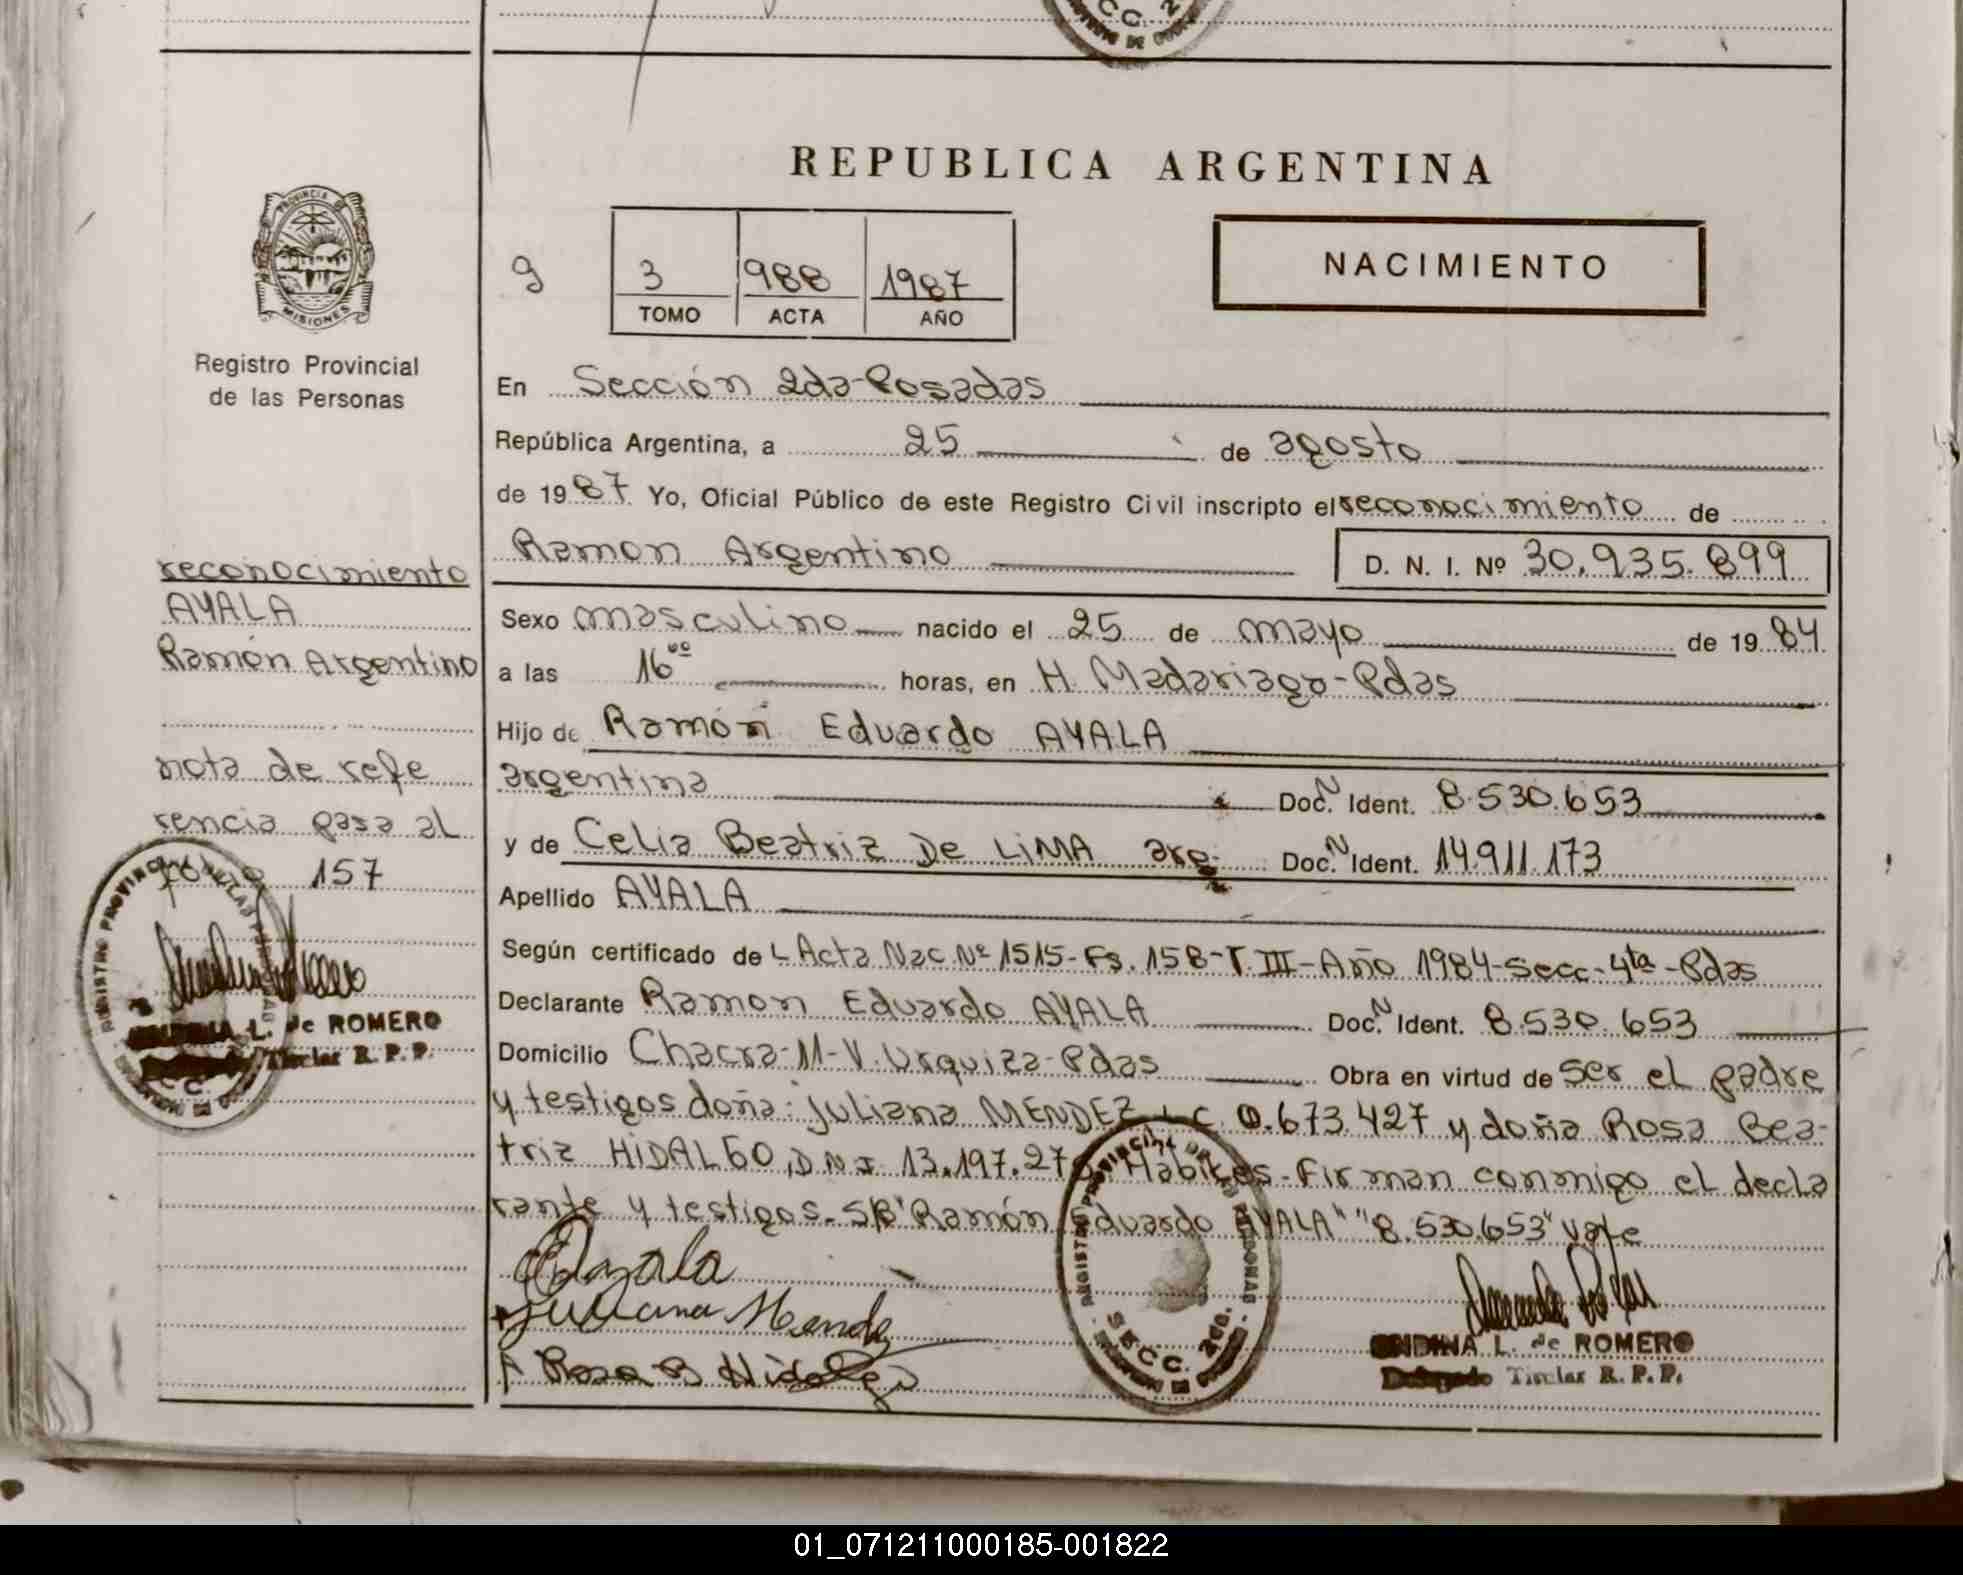 REPUBLICA ARGENTINA
PROVINCIA DE
MISIONES
Registro Provincial
de las Personas
9
3 988 1987
TOMO ACTA AÑO
NACIMIENTO
En Sección 2da-Posadas
República Argentina, a 25 de agosto
de 1987 Yo, Oficial Público de este Registro Civil inscripto el reconocimiento de
Ramon Argentino D. N. I. Nº 30.935.899
Sexo masculino nacido el 25 de mayo de 1984
a las 16⁰⁰ horas, en H. Madariaga-Pdas
Hijo de Ramón Eduardo AYALA
argentina Doc. N Ident. 8.530.653
y de Celia Beatriz De LiMA arg. Doc. N Ident. 14.911.173
Apellido AYALA
Según certificado de L Acta Nac. Nº 1515-Fs. 158-T. III-Año 1984-Secc-4ta-Pdas
Declarante Ramon Eduardo AYALA Doc. N Ident. 8.530.653
Domicilio Chacra-11-V. Urquiza-Pdas Obra en virtud de ser el padre
y testigos doña: juliana MENDEZ L C 0.673.427 y doña Rosa Bea-
triz HiDALGO, D N I 13.197.27 Habiles-Firman conmigo el decla
rante y testigos. S/B "Ramón Eduardo AYALA" "8.530.653" vale
reconocimiento
AYALA
Ramón Argentino
nota de refe
rencia pasa al
folio 157
REGISTRO PROVINCIAL DE LAS PERSONAS
ONDINA L. de ROMERO
Delegado Titular R. P. P.
Ayala
Juliana Mendez
Rosa B Hidalgo
REGISTRO PROVINCIAL DE LAS PERSONAS
SECC. 2da.
ONDINA L. de ROMERO
Delegado Titular R. P. P.
01_071211000185-001822